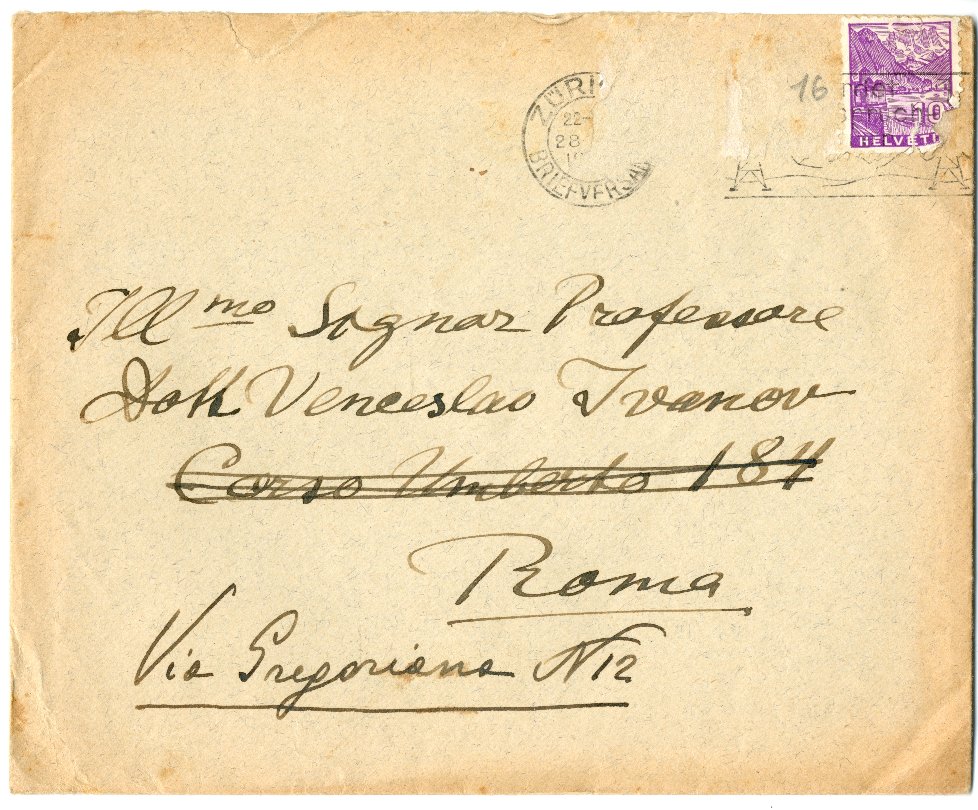 16
ZÜRI
22-
28
BRIEFVERSAN
10
HELVETI
Ill mo Signor Professore
Dott Venceslao Ivanov
Corso Umberto 184
Roma
Via Gregoriana N 12